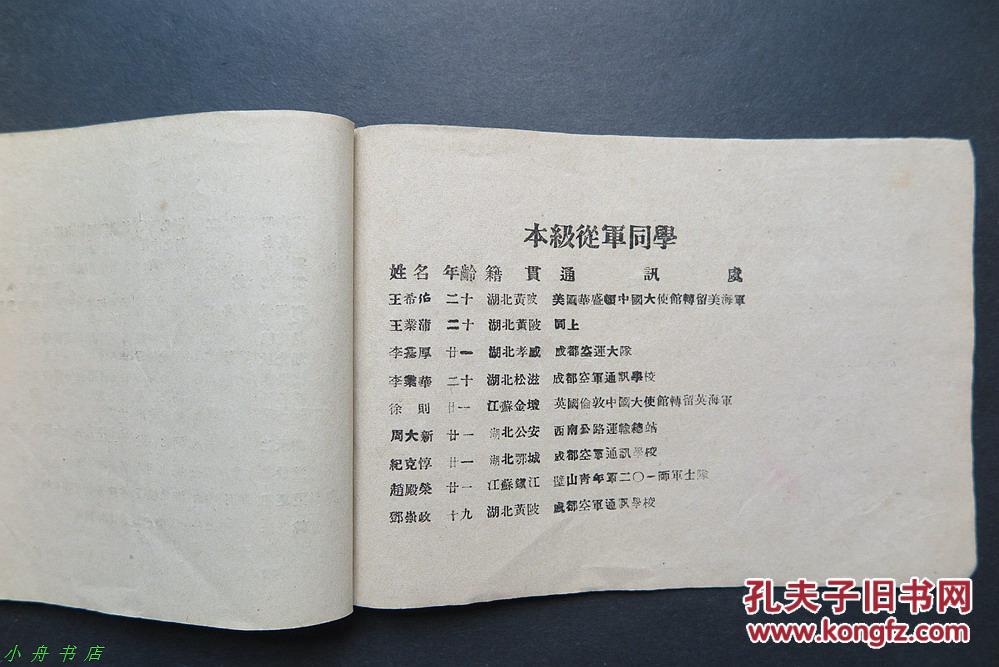 本級從軍同學
姓名 年齡 籍貫 通訊處
王希佑 二十 湖北黃陂 美國華盛頓中國大使館轉留美海軍
王業蒲 二十 湖北黃陂 同上
李厚 廿一 湖北孝感 成都空運大隊
李業華 二十 湖北松滋 成都空軍通訊學校
徐則 廿一 江蘇金壇 英國倫敦中國大使館轉留英海軍
周大新 廿一 湖北公安 西南公路運輸總站
紀克惇 廿一 湖北鄂城 成都空軍通訊學校
趙殿榮 廿一 江蘇鎮江 璧山青年軍二〇一師軍士隊
鄧崇政 十九 湖北黃陂 成都空軍通訊學校
孔夫子旧书网
www.kongfz.com
小舟书店